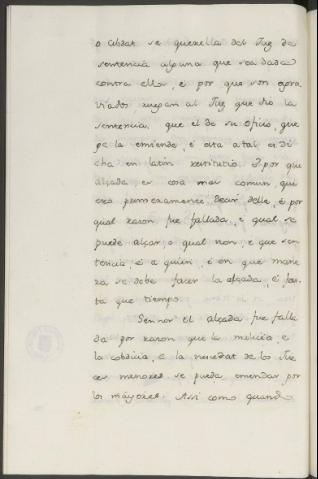 o cibdat se querella del Juz de
sentencia alguna que sea dada
contra ellos, e por que son agra
viados, ruegan al Juz que dio la
sentencia, que el de su oficio, que
ge la emiende, e esta atal es di
cha en latin restitutio. E por que
alçada, es cosa mas comun, qui
ero primeramente, decir delle, e por
qual razon fue fallada, e qual se
puede alçar, o qual non, e que sen
tencia, e a quien, e en que mane
ra se debe facer la alçada, e fas
ta que tiempo.
Sennor el alçada fue falla
da por razon que la malicia e
la cobdicia, e la necedat de los Jue
ces menores se pueda emendar por
los mayores. Assi como quando